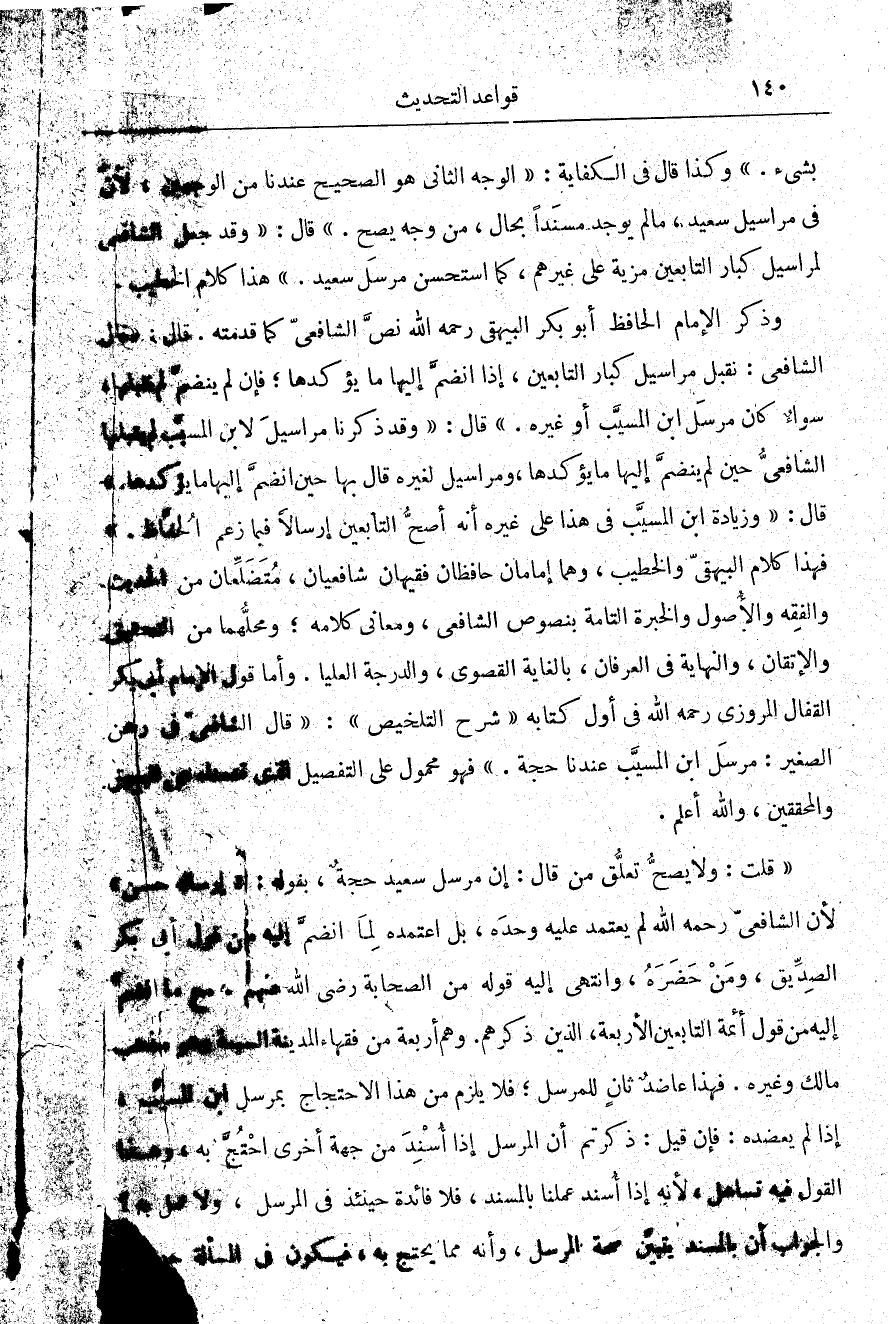 ١٤٠
قواعد التحديث
بشيء . » وكذا قال فى الكفاية : « الوجه الثانى هو الصحيح عندنا من الوجهين ، لأنَّ
فى مراسيل سعيد ، مالم يوجد مسنَداً بحال ، من وجه يصح . » قال : « وقد جعل الشافعى
لمراسيل كبار التابعين مزية على غيرهم ، كما استحسن مرسَل سعيد . » هذا كلام الخطيب .
وذكر الإمام الحافظ أبو بكر البيهقى رحمه الله نصَّ الشافعىّ كما قدمته . قال : « قال
الشافعى : نقبل مراسيل كبار التابعين ، إذا انضمَّ إليها ما يؤكدها ؛ فإن لم ينضمَّ لم نقبلها ،
سواءٌ كان مرسَل ابن المسيَّب أو غيره . » قال : « وقد ذكرنا مراسيلَ لابن المسيَّب لم يقبلها
الشافعىُّ حين لم ينضمَّ إليها مايؤكدها ،ومراسيل لغيره قال بها حين انضمَّ إليها مايؤكدها. »
قال : « وزيادة ابن المسيَّب فى هذا على غيره أنه أصحُّ التابعين إرسالاً فيما زعم الحفَّاظ . »
فهذا كلام البيهقىّ والخطيب ، وهما إمامان حافظان فقيهان شافعيان ، مُتَضَلِّعان من الحديث
والفقه والأُصول والخبرة التامة بنصوص الشافعى ، ومعانى كلامه ؛ ومحلُّهما من التحقيق
والإتقان ، والنهاية فى العرفان ، بالغاية القصوى ، والدرجة العليا . وأما قول الإمام أبى بكر
القفال المروزى رحمه الله فى أول كتابه « شرح التلخيص » : « قال الشافعىّ فى رهن
الصغير : مرسَل ابن المسيَّب عندنا حجة . » فهو محمول على التفصيل الذى قدمناه عن البيهقى
والمحققين ، والله أعلم .
« قلت : ولايصحُّ تعلُّق من قال : إن مرسل سعيد حجةٌ ، بقوله : « إرساله حسن »
لأن الشافعىّ رحمه الله لم يعتمد عليه وحدَه ، بل اعتمده لِمَا انضمَّ إليه من قول أبى بكر
الصدِّيق ، ومَنْ حَضَرَهُ ، وانتهى إليه قوله من الصحابة رضى الله عنهم ، مع ما انضمَّ
إليه من قول أئمة التابعين الأربعة، الذين ذكرهم. وهم أربعة من فقهاء المدينة السبعة وهو مذهب
مالك وغيره . فهذا عاضدٌ ثانٍ للمرسل ؛ فلا يلزم من هذا الاحتجاج بمرسل ابن المسيَّب ،
إذا لم يعضده : فإن قيل : ذكرتم أن المرسل إذا أُسْنِدَ من جهة أخرى احْتُجَّ به ، وهذا
القول فيه تساهل ، لأنه إذا أُسند عملنا بالمسند ، فلا فائدة حينئذ فى المرسل ، ولا عمل به ؟
والجواب أن بالمسند يتبيَّن صحة المرسل ، وأنه مما يحتج به ، فيكون فى المسألة